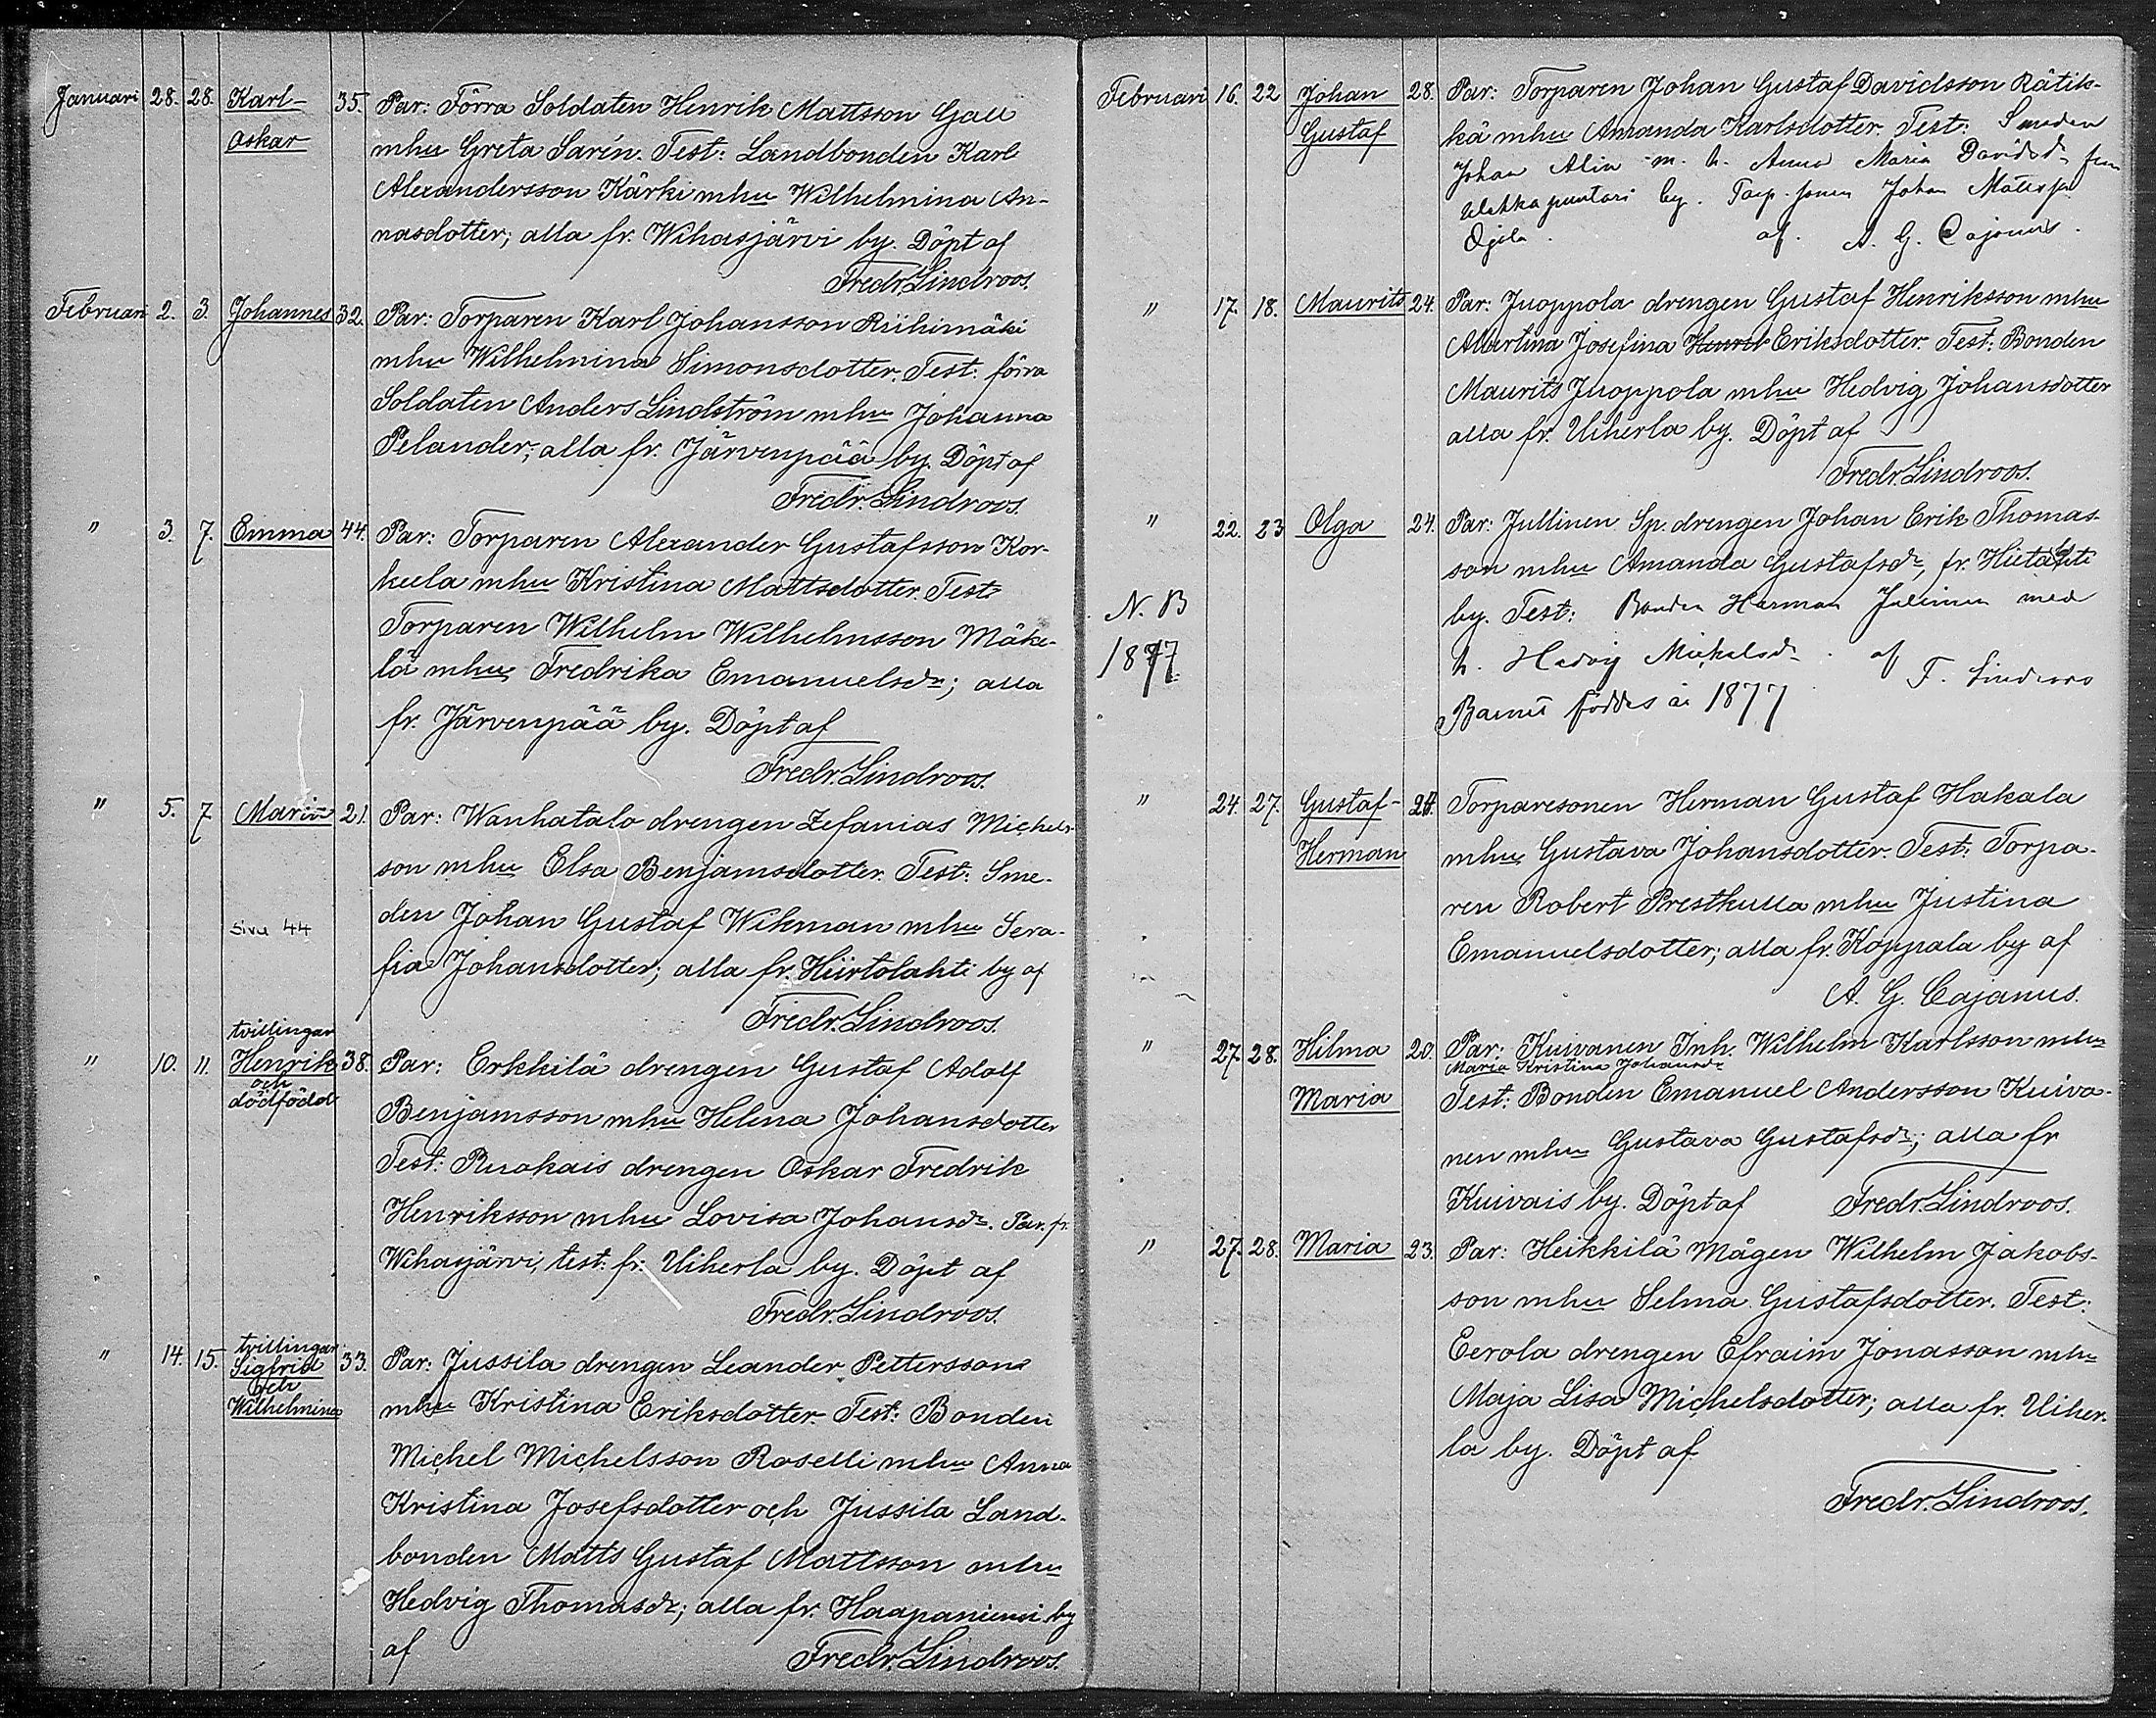 Januari 28. 28. Karl- 35. Par: Förra Soldaten Henrik Mattsson Gall
Oskar mhu Greta Sarén. Test: Landbonden Karl
Alexandersson Kärki mhu Wilhelmina An-
nasdotter; alla fr. Wihasjärvi by. Döpt af
Fredr. Lindroos.
Februari 2. 3. Johannes 32. Par: Torparen Karl Johansson Riihimäki
mhu Wilhelmina Simonsdotter. Test: förra
Soldaten Anders Lindström mhu Johanna
Pelander; alla fr. Järvenpää by. Döpt af
Fredr. Lindroos.
" 3. 7. Emma 44. Par: Torparen Alexander Gustafsson Kor-
keela mhu Kristina Mattsdotter. Test:
Torparen Wilhelm Wilhelmsson Mäke-
lä mhu Fredrika Emanuelsdr; alla
fr. Järvenpää by. Döpt af
Fredr. Lindroos.
" 5. 7. Maria 21. Par: Wanhatalo drengen Zefanias Michels-
son mhu Elsa Benjamsdotter. Test: Sme-
den Johan Gustaf Wikman mhu Sera-
sivu 44
fia Johansdotter; alla fr. Hiirtolahti by af
Fredr. Lindroos.
tvillingar
" 10. 11. Henrik 38. Par: Erkkilä drengen Gustaf Adolf
och
dödfödd
Benjamsson mhu Helena Johansdotter
Test: Ruokais drengen Oskar Fredrik
Henriksson mhu Lovisa Johansdr. Par. fr.
Wihasjärvi, test. fr. Uiherla by. Döpt af
Fredr. Lindroos.
tvillingar
" 14. 15. Sigfrid 33. Par: Jussila drengen Leander Pettersson
och
Wilhelmina
mhu Kristina Eriksdotter. Test: Bonden
Michel Michelsson Roselli mhu Anna
Kristina Josefsdotter och Jussila Land-
bonden Matts Gustaf Mattsson mhu
Hedvig Thomasdr; alla fr. Haapaniemi by
af Fredr. Lindroos.
Februari 16. 22 Johan 28. Par: Torparen Johan Gustaf Davidsson Rätik-
Gustaf kä mhu Amanda Karlsdotter. Test: Smeden
Johan Alin m. h. Anna Maria Davidsd. från
by. Torp. sonen Johan Mattsson
Ojela. af. A. G. Cajanus.
" 17. 18. Maurits 24. Par: Juoppola drengen Gustaf Henriksson mhu
Albertina Josefina Eriksdotter. Test: Bonden
Maurits Juoppola mhu Hedvig Johansdotter
alla fr. Uiherla by. Döpt af
Fredr. Lindroos.
" 22. 23 Olga 24. Par: Jullinen Sp. drengen Johan Erik Thomas-
son mhu Amanda Gustafsdr, fr.
N. B by. Test: Bonden Herman Julinen med
1877 h. Hedvig Mickelsdr. af F. Lindroos
Barnet föddes år 1877
" 24. 27. Gustaf- 24. Torparesonen Herman Gustaf Hakala
Herman mhu Gustava Johansdotter. Test: Torpa-
ren Robert Prestkulla mhu Justina
Emanuelsdotter; alla fr. Koppala by af
A. G. Cajanus.
" 27. 28. Hilma 20. Par: Kuivanen Inh. Wilhelm Karlsson mhu
Maria Kristina Johansdr
Maria Test: Bonden Emanuel Andersson Kuiva-
nen mhu Gustava Gustafsdr; alla fr
Kuivais by. Döpt af Fredr. Lindroos.
" 27. 28. Maria 23. Par: Heikkilä Mågen Wilhelm Jakobs-
son mhu Selma Gustafsdotter. Test:
Eerola drengen Efraim Jonasson mhu
Maja Lisa Michelsdotter; alla fr. Uiher-
la by. Döpt af
Fredr. Lindroos.